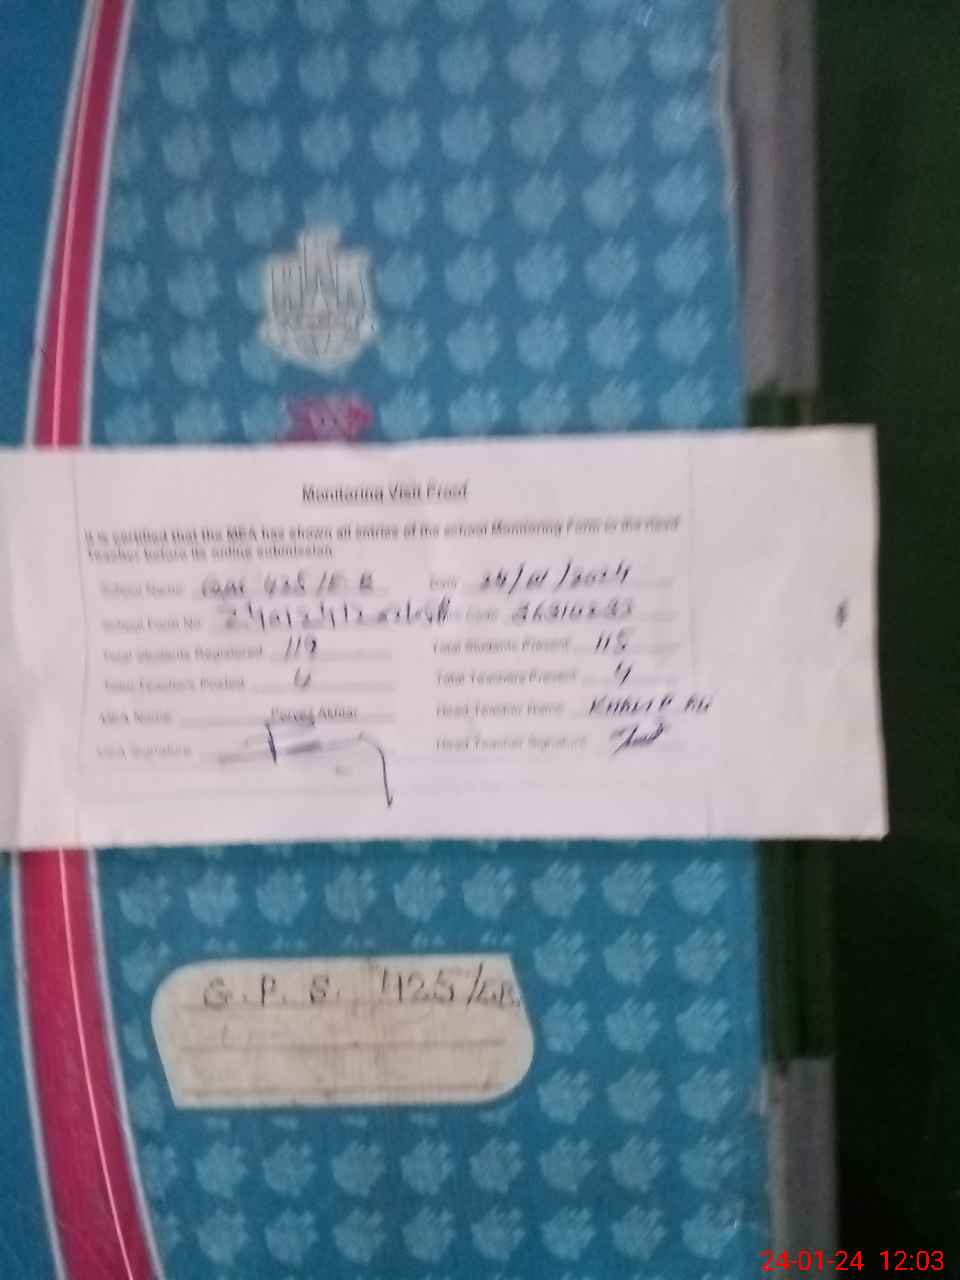 Monitoring Visit Proof
It is certified that the MEA has shown all entries of the school Monitoring Form to the Head
Teacher before its online submission.
School Name GPS 425/E.B Date 24/01/2024
School Form No
Total Students Registered 119 Total Students Present 115
Total Teachers Posted 4 Total Teachers Present 4
MEA Name Pervez Akhtar Head Teacher Name
MEA Signature Head Teacher Signature
G.P.S. 425/EB
24-01-24 12:03